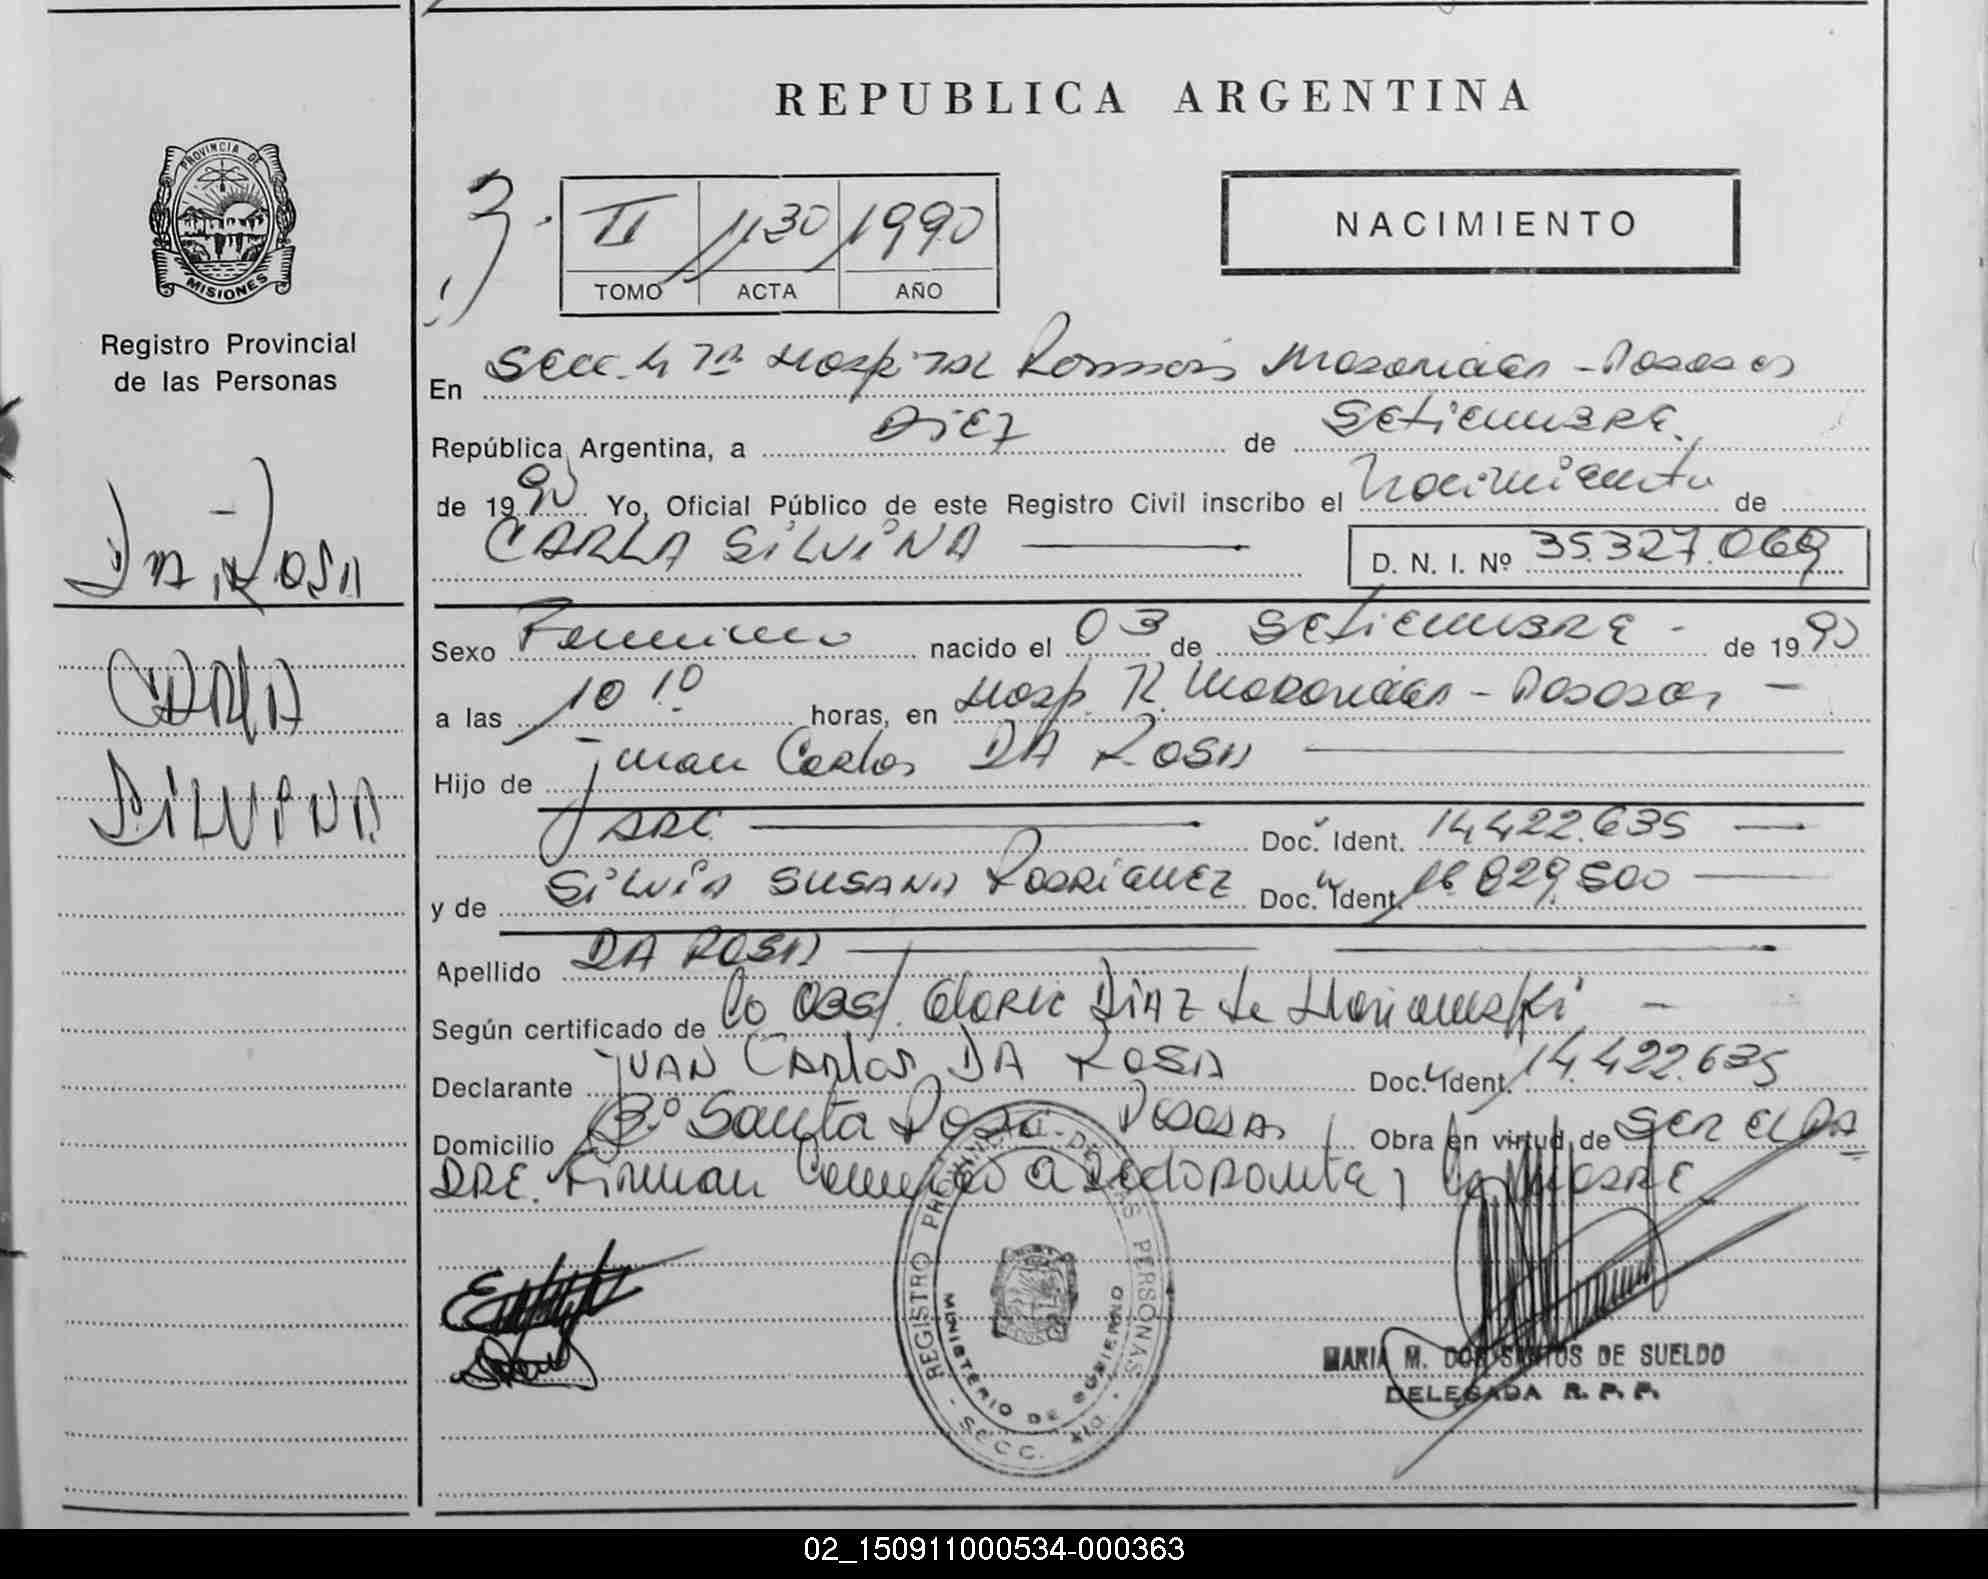 REPUBLICA ARGENTINA
PROVINCIA DE
MISIONES
Registro Provincial
de las Personas
DA ROSA
CARLA
SILVINA
II 1130 1990
TOMO ACTA AÑO
NACIMIENTO
En Secc. 4ta Hospital Ramon Madariaga - Posadas
República Argentina, a DIEZ de SETIEMBRE
de 1990 Yo, Oficial Público de este Registro Civil inscribo el Nacimiento de
CARLA SILVINA
D. N. I. Nº 35.327.069
Sexo Femenino nacido el 03 de SETIEMBRE - de 1990
a las 10 10 horas, en Hosp. R. Madariaga - Posadas -
Hijo de Juan Carlos DA ROSA
ARG. Doc. Ident. 14.422.635
y de SILVIA SUSANA RODRIGUEZ Doc. Ident. 18.829.500
Apellido DA ROSA
Según certificado de la Obst. Gloria DIAZ de
Declarante JUAN CARLOS DA ROSA Doc. Ident. 14.422.635
Domicilio Bº Santa Rosa Posadas Obra en virtud de SER EL PA
DRE. Firman Conmigo el declarante y la Madre
REGISTRO PROVINCIAL DE LAS PERSONAS
MINISTERIO DE GOBIERNO
SECC.
MARIA M. DOS SANTOS DE SUELDO
DELEGADA R. P. P.
02_150911000534-000363